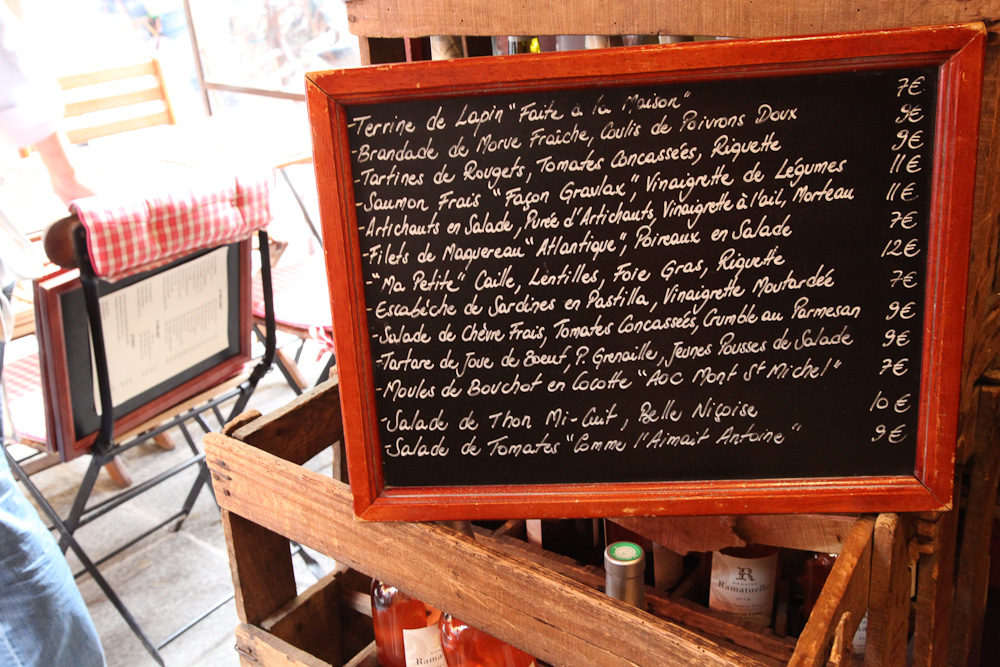 -Terrine de Lapin "Faite à la Maison" 7€
-Brandade de Morue Fraîche, Coulis de Poivrons Doux 9€
-Tartines de Rougets, Tomates Concassées, Riquette 9€
-Saumon Frais "Façon Gravlax", Vinaigrette de Légumes 11€
-Artichauts en Salade, Purée d'Artichauts, Vinaigrette à l'ail, Morteau 11€
-Filets de Maquereau "Atlantique", Poireaux en Salade 7€
-"Ma Petite" Caille, Lentilles, Foie Gras, Riquette 12€
-Escabèche de Sardines en Pastilla, Vinaigrette Moutardée 7€
-Salade de Chèvre Frais, Tomates Concassées, Crumble au Parmesan 9€
-Tartare de Joue de Boeuf, P. Grenaille, Jeunes Pousses de Salade 9€
-Moules de Bouchot en Cocotte "AOC Mont St Michel" 7€
-Salade de Thon Mi-Cuit, Belle Niçoise 10€
-Salade de Tomates "Comme l'Aimait Antoine" 9€
R
Ramatuelle